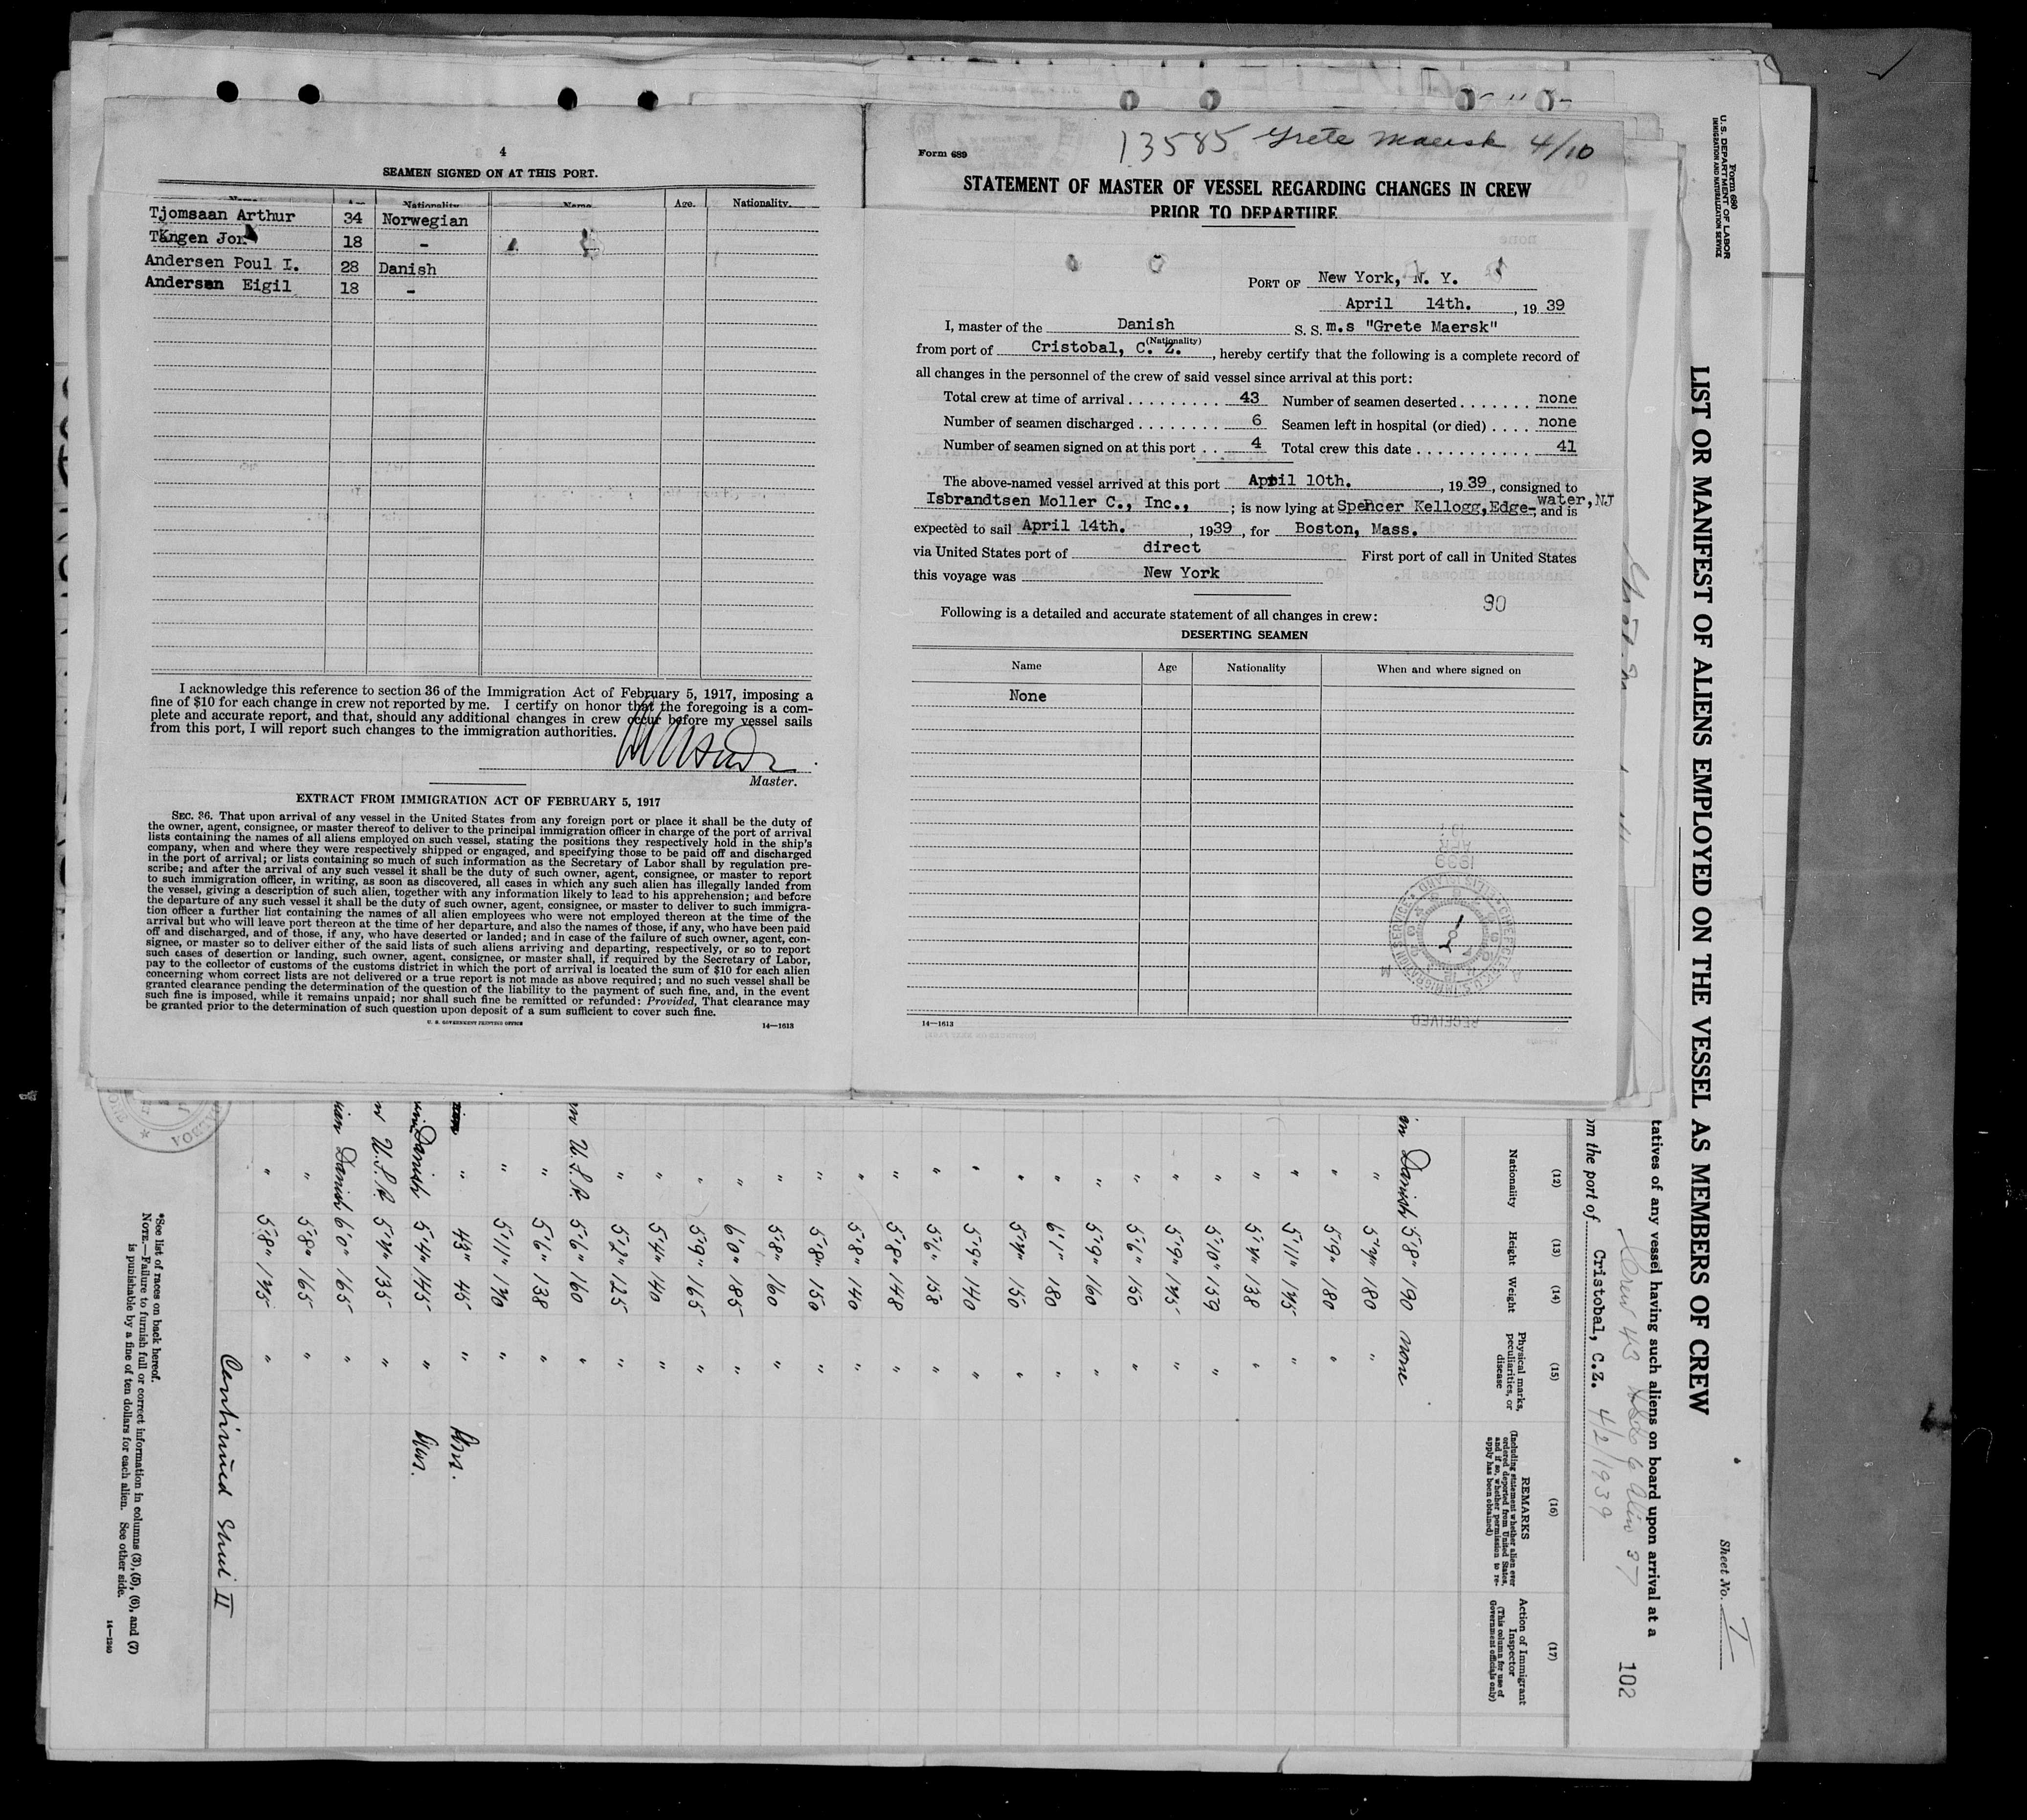 4
SEAMEN SIGNED ON AT THIS PORT.
Name Age Nationality Name Age. Nationality.
Tjomsaan Arthur 34 Norwegian
Tangen Jon 18 -
Andersen Poul I. 28 Danish
Andersen Eigil 18 -
I acknowledge this reference to section 36 of the Immigration Act of February 5, 1917, imposing a
fine of $10 for each change in crew not reported by me. I certify on honor that the foregoing is a com-
plete and accurate report, and that, should any additional changes in crew occur before my vessel sails
from this port, I will report such changes to the immigration authorities.
Master.
EXTRACT FROM IMMIGRATION ACT OF FEBRUARY 5, 1917
SEC. 36. That upon arrival of any vessel in the United States from any foreign port or place it shall be the duty of
the owner, agent, consignee, or master thereof to deliver to the principal immigration officer in charge of the port of arrival
lists containing the names of all aliens employed on such vessel, stating the positions they respectively hold in the ship's
company, when and where they were respectively shipped or engaged, and specifying those to be paid off and discharged
in the port of arrival; or lists containing so much of such information as the Secretary of Labor shall by regulation pre-
scribe; and after the arrival of any such vessel it shall be the duty of such owner, agent, consignee, or master to report
to such immigration officer, in writing, as soon as discovered, all cases in which any such alien has illegally landed from
the vessel, giving a description of such alien, together with any information likely to lead to his apprehension; and before
the departure of any such vessel it shall be the duty of such owner, agent, consignee, or master to deliver to such immigra-
tion officer a further list containing the names of all alien employees who were not employed thereon at the time of the
arrival but who will leave port thereon at the time of her departure, and also the names of those, if any, who have been paid
off and discharged, and of those, if any, who have deserted or landed; and in case of the failure of such owner, agent, con-
signee, or master so to deliver either of the said lists of such aliens arriving and departing, respectively, or so to report
such cases of desertion or landing, such owner, agent, consignee, or master shall, if required by the Secretary of Labor,
pay to the collector of customs of the customs district in which the port of arrival is located the sum of $10 for each alien
concerning whom correct lists are not delivered or a true report is not made as above required; and no such vessel shall be
granted clearance pending the determination of the question of the liability to the payment of such fine, and, in the event
such fine is imposed, while it remains unpaid; nor shall such fine be remitted or refunded: Provided, That clearance may
be granted prior to the determination of such question upon deposit of a sum sufficient to cover such fine.
U. S. GOVERNMENT PRINTING OFFICE 14—1613
13585 Grete Maersk 4/10
Form 689
STATEMENT OF MASTER OF VESSEL REGARDING CHANGES IN CREW
PRIOR TO DEPARTURE
PORT OF New York, N. Y.
April 14th. , 19 39
I, master of the Danish S. S. m.s "Grete Maersk"
(Nationality)
from port of Cristobal, C. Z. , hereby certify that the following is a complete record of
all changes in the personnel of the crew of said vessel since arrival at this port:
Total crew at time of arrival 43 Number of seamen deserted none
Number of seamen discharged 6 Seamen left in hospital (or died) none
Number of seamen signed on at this port 4 Total crew this date 41
The above-named vessel arrived at this port April 10th. , 19 39 , consigned to
Isbrandtsen Moller C., Inc., ; is now lying at Spencer Kellogg,Edge-water,NJ ; and is
expected to sail April 14th. , 1939 , for Boston, Mass.
via United States port of direct First port of call in United States
this voyage was New York
90
Following is a detailed and accurate statement of all changes in crew:
DESERTING SEAMEN
Name Age Nationality When and where signed on
None
14—1613
Form 680
U. S. DEPARTMENT OF LABOR
IMMIGRATION AND NATURALIZATION SERVICE
Sheet No. I
LIST OR MANIFEST OF ALIENS EMPLOYED ON THE VESSEL AS MEMBERS OF CREW
tatives of any vessel having such aliens on board upon arrival at a
102
Crew 43
om the port of Cristobal, C.Z. 4/2/1939
(12) (13) (14) (15) (16) (17)
Nationality Height Weight Physical marks, peculiarities, or disease REMARKS (Including statement whether alien ever ordered deported from United States, and if so, whether permission to re-apply has been obtained) Action of Immigrant Inspector (This column for use of Government officials only)
Danish 5'8" 190 none
" 5'4" 180 "
" 5'9" 180 "
" 5'11" 175 "
" 5'4" 138 "
" 5'10" 159 "
" 5'9" 175 "
" 5'6" 150 "
" 5'9" 160 "
" 6'1" 180 "
" 5'4" 150 "
" 5'9" 140 "
" 5'6" 158 "
" 5'8" 148 "
" 5'8" 140 "
" 5'8" 150 "
" 5'8" 160 "
" 6'0" 185 "
" 5'9" 165 "
" 5'4" 140 "
" 5'2" 125 "
U.S.A. 5'6" 160 "
" 5'6" 138 "
" 5'11" 170 "
" 43" 45 "
Danish 5'4" 145 "
U.S.A. 5'4" 135 "
Danish 6'0" 165 "
" 5'8" 165 "
" 5'8" 175 "
Continued Sheet II
*See list of races on back hereof.
NOTE.—Failure to furnish full or correct information in columns (3), (5), (6), and (7)
is punishable by a fine of ten dollars for each alien. See other side.
14—1240